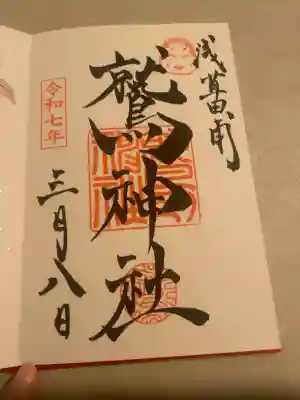 浅草田甫
鷲神社
令和七年
三月八日